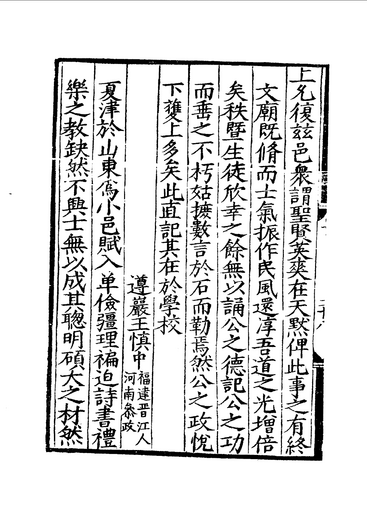 上允復玆邑衆謂聖賢英爽在天默俾此事之有終
文廟既脩而士氣振作民風還淳吾道之光增倍
矣秩暨生徒欣幸之餘無以誦公之德記公之功
而垂之不朽姑摭數言於石而勒焉然公之政悅
下獲上多矣此直記其在於學校
遵巖王慎中福建晉江人河南叅政
夏津於山東爲小邑賦入單儉疆理褊迫詩書禮
樂之教缺然不興士無以成其聰明碩大之材然